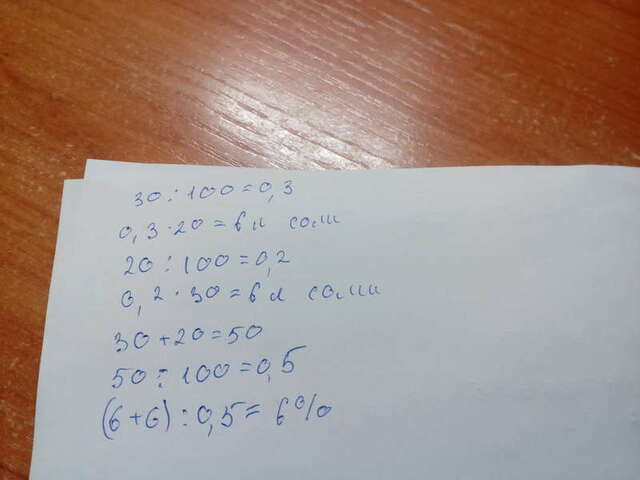 30 : 100 = 0,3
0,3 · 20 = 6 л соли
20 : 100 = 0,2
0,2 · 30 = 6 л соли
30 + 20 = 50
50 : 100 = 0,5
(6 + 6) : 0,5 = 6%